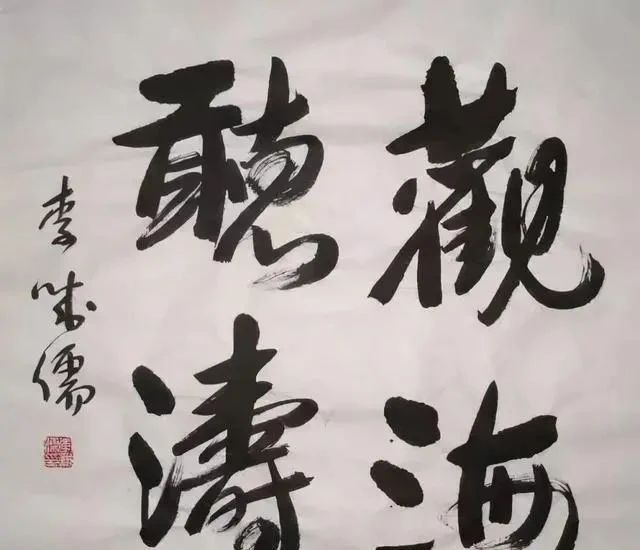 觀海
聽濤
李成儒